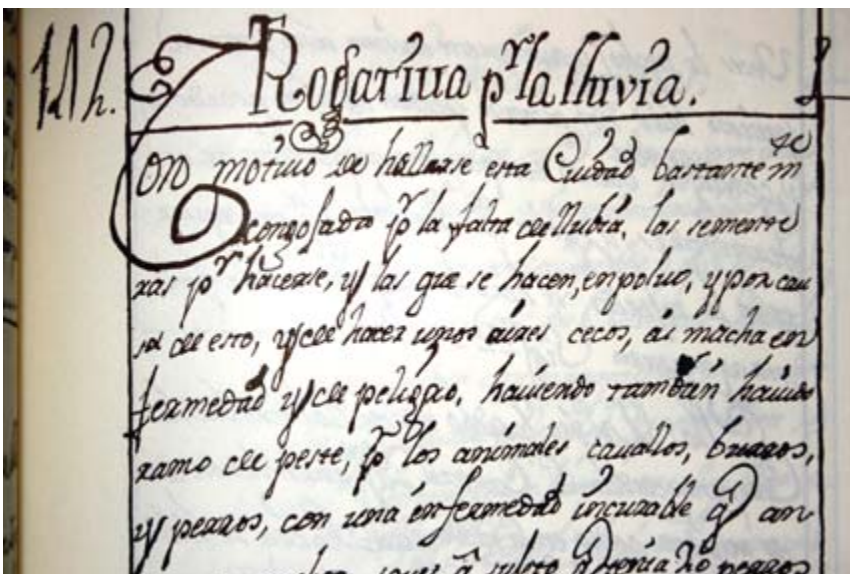 142. Rogativa pr. la lluvia.
CON motivo de hallarse esta Ciudad bastante
acongojada pr la falta de llubia, las semente
ras pr hacerse, y las que se hacen, en polvo, y por cau
sa de esto, y de hacer unos aires cecos, ai mucha en
fermedad y de peligro, haviendo tambien havido
ramo de peste, pr los animales cavallos, burros,
y perros, con una enfermedad incurable q an
perros